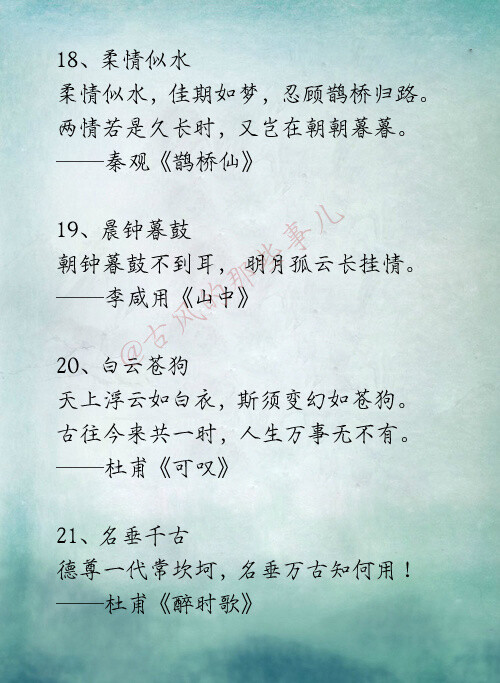 18、柔情似水
柔情似水，佳期如梦，忍顾鹊桥归路。
两情若是久长时，又岂在朝朝暮暮。
——秦观《鹊桥仙》
19、晨钟暮鼓
朝钟暮鼓不到耳， 明月孤云长挂情。
——李咸用《山中》
20、白云苍狗
天上浮云如白衣，斯须变幻如苍狗。
古往今来共一时，人生万事无不有。
——杜甫《可叹》
21、名垂千古
德尊一代常坎坷，名垂万古知何用！
——杜甫《醉时歌》
@古风的那些事儿